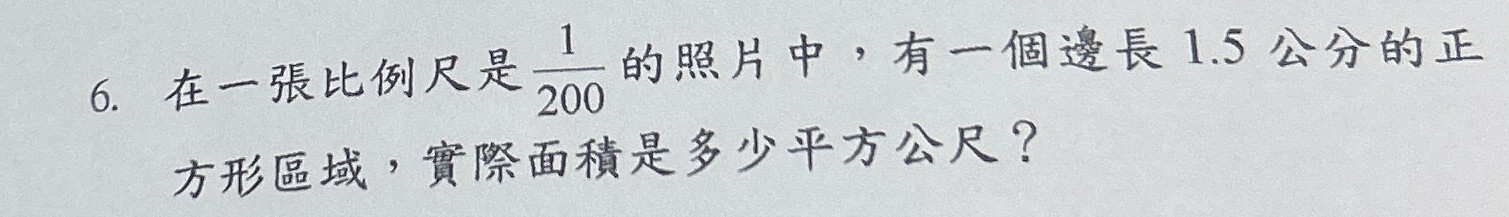 6. 在一張比例尺是 1/200 的照片中，有一個邊長 1.5 公分的正
方形區域，實際面積是多少平方公尺？